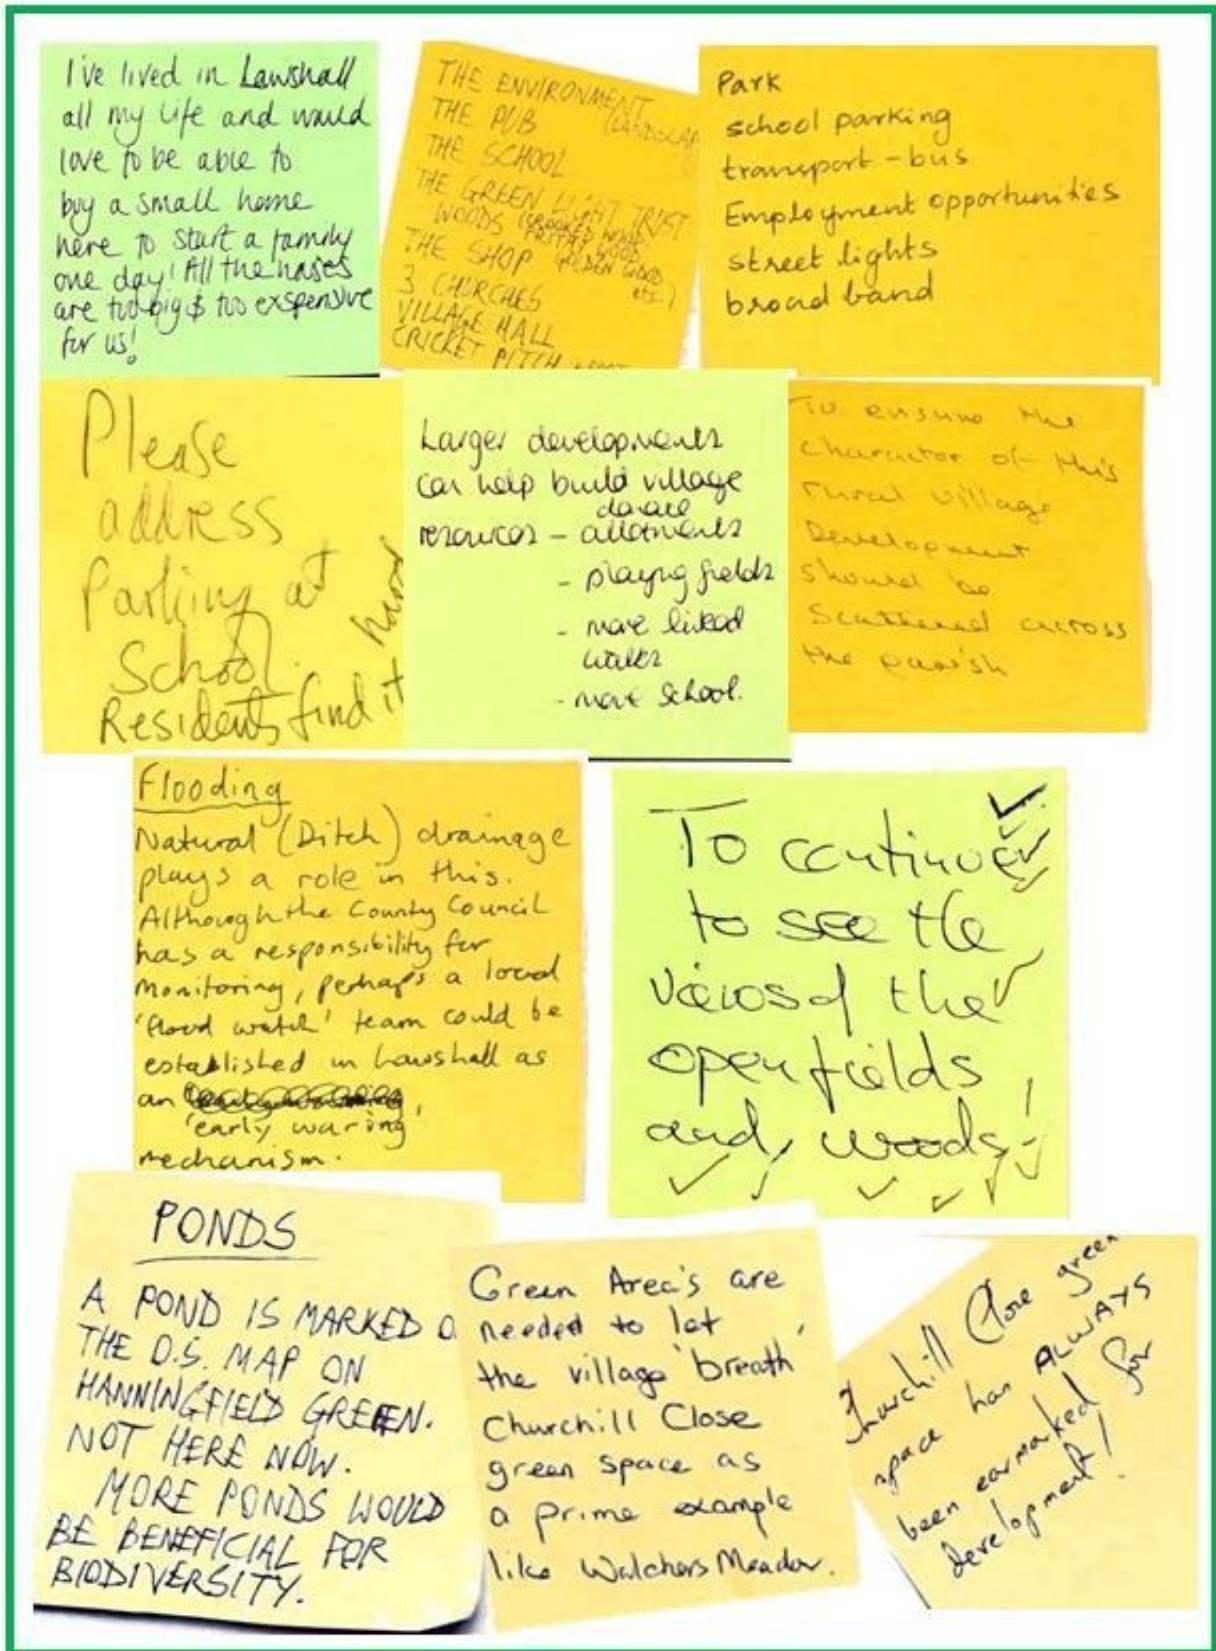 I've lived in Lawshall
all my life and would
love to be able to
buy a small home
here to start a family
one day! All the
are too big & too expensive
for us!
THE ENVIRONMENT
(LANDSCAP
THE PUB
THE SCHOOL
THE GREEN LIGHT TRUST
WOODS (CROOKED WOOD
FRITHY WOOD
GOLDEN WOOD
etc.)
THE SHOP
3 CHURCHES
VILLAGE HALL
CRICKET PITCH
Park
school parking
transport - bus
Employment opportunities
street lights
broad band
Please
address
Parking at
School.
Residents find it
hard
Larger developments
can help build village
resources - allotments
- playing fields
- more linked
walks
- more school.
To ensure the
character of this
rural village
Development
should be
Scattered across
the parish
Flooding
Natural (Ditch) drainage
plays a role in this.
Although the County Council
has a responsibility for
monitoring, perhaps a local
'flood watch' team could be
established in Lawshall as
an
'early waring'
mechanism.
To continue
to see the
views of the
open fields
and woods!
PONDS
A POND IS MARKED O
THE O.S. MAP ON
HANNINGFIELD GREEN.
NOT HERE NOW.
MORE PONDS WOULD
BE BENEFICIAL FOR
BIODIVERSITY.
Green Area's are
needed to let
the village 'breath'
Churchill Close
green space as
a prime example
like Walchers Meadow.
Churchill Close green
space has ALWAYS
been earmarked for
development!